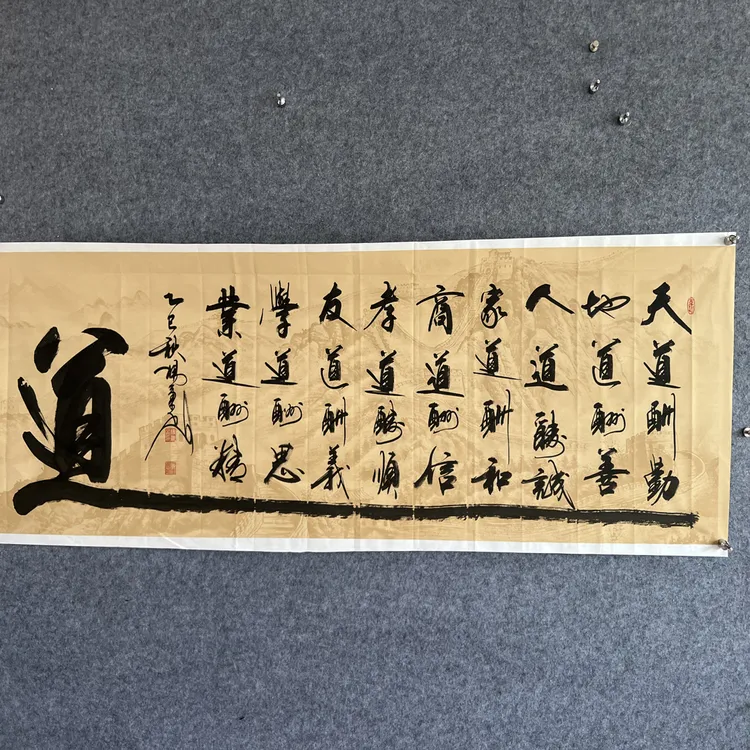 天道酬勤
地道酬善
人道酬誠
家道酬和
商道酬信
孝道酬順
友道酬義
學道酬思
業道酬精
乙巳秋
道